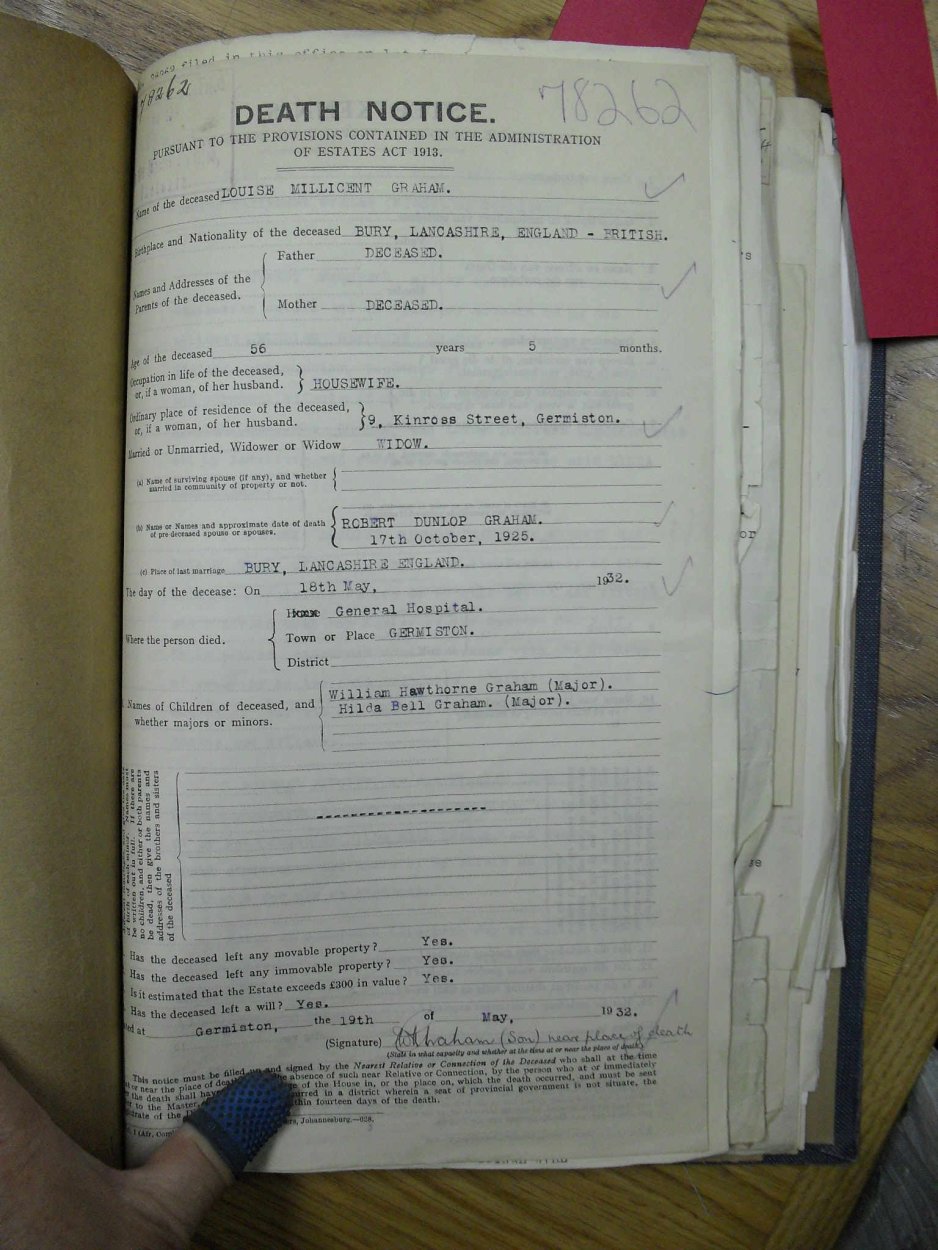 filed in this office on 1st
78262
78262
DEATH NOTICE.
PURSUANT TO THE PROVISIONS CONTAINED IN THE ADMINISTRATION
OF ESTATES ACT 1913.
Name of the deceased LOUISE MILLICENT GRAHAM.
Birthplace and Nationality of the deceased BURY, LANCASHIRE, ENGLAND - BRITISH.
Names and Addresses of the Parents of the deceased.
Father DECEASED.
Mother DECEASED.
Age of the deceased 56 years 5 months.
Occupation in life of the deceased,
or, if a woman, of her husband. HOUSEWIFE.
Ordinary place of residence of the deceased,
or, if a woman, of her husband. 9, Kinross Street, Germiston.
Married or Unmarried, Widower or Widow WIDOW.
(a) Name of surviving spouse (if any), and whether
married in community of property or not.
(b) Name or Names and approximate date of death
of pre-deceased spouse or spouses.
ROBERT DUNLOP GRAHAM.
17th October, 1925.
(c) Place of last marriage BURY, LANCASHIRE ENGLAND.
The day of the decease: On 18th May, 1932.
Where the person died.
House General Hospital.
Town or Place GERMISTON.
District
Names of Children of deceased, and
whether majors or minors.
William Hawthorne Graham (Major).
Hilda Bell Graham. (Major).
be written out in full. If there are
no children, and either or both parents
be dead, then give the names and
addresses of the brothers and sisters
of the deceased
Has the deceased left any movable property? Yes.
Has the deceased left any immovable property? Yes.
Is it estimated that the Estate exceeds £300 in value? Yes.
Has the deceased left a will? Yes.
at Germiston, the 19th of May, 1932.
(Signature) WHGraham (Son) near place of death
(State in what capacity and whether at the time at or near the place of death)
This notice must be filled up and signed by the Nearest Relative or Connection of the Deceased who shall at the time
or near the place of death absence of such near Relative or Connection, by the person who at or immediately
the death shall have of the House in, or the place on, which the death occurred, and must be sent
to the Master occurred in a district wherein a seat of provincial government is not situate, the
of the within fourteen days of the death.
Johannesburg.—028.